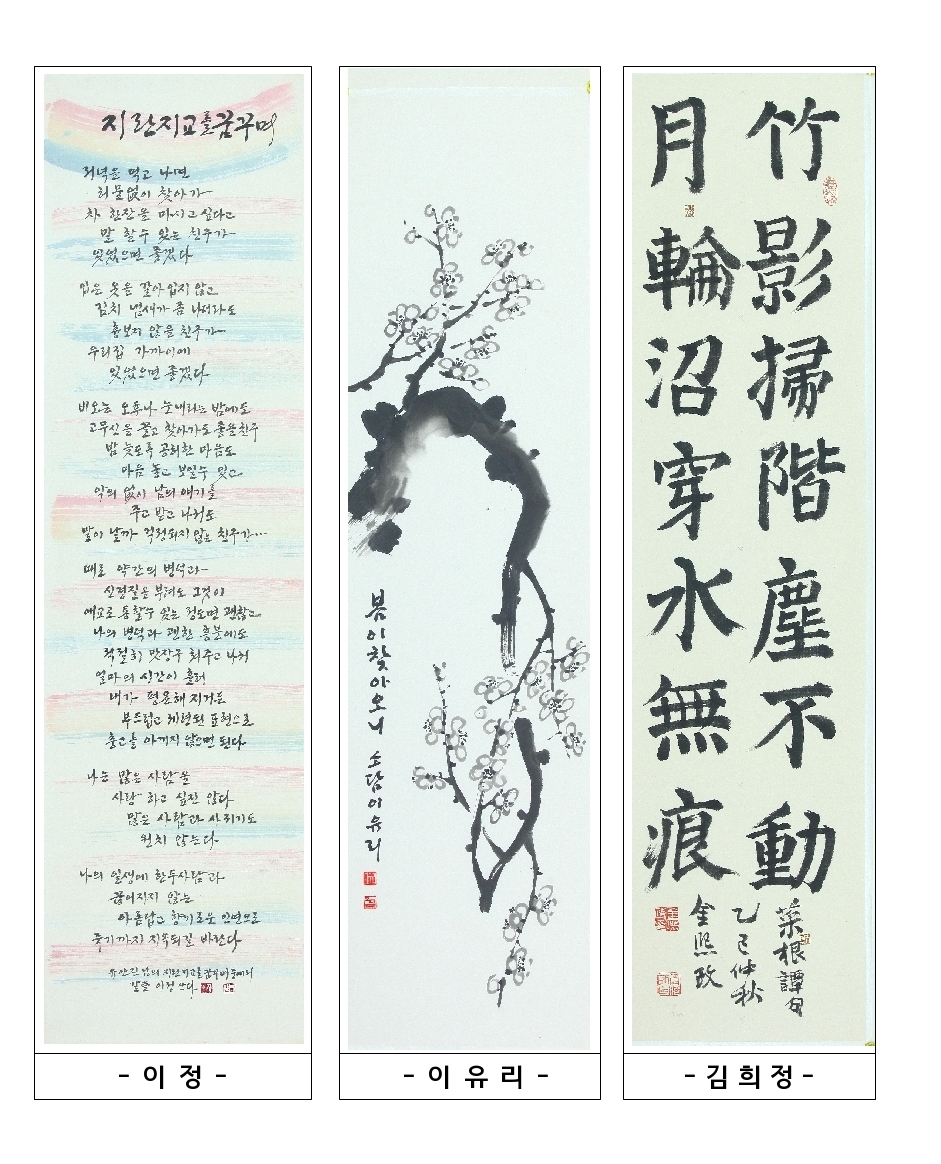 지란지교를 꿈꾸며
저녁을 먹고 나면
허물없이 찾아가
차 한잔을 마시고 싶다고
말 할수 있는 친구가
있었으면 좋겠다
입은 옷을 갈아입지 않고
김치 냄새가 좀 나더라도
흉보지 않을 친구가
우리집 가까이에
있었으면 좋겠다
비오는 오후나 눈내리는 밤에도
고무신을 끌고 찾아가도 좋을 친구
밤 늦도록 공허한 마음도
마음 놓고 보일수 있고
악의 없이 남의 얘기를
주고 받고 나서도
말이 날까 걱정되지 않는 친구가…
때로 약간의 변덕과
신경질을 부려도 그것이
애교로 통할수 있는 정도면 괜찮고
나의 변덕과 괜한 흥분에도
적절히 맞장구 쳐주고 나서
얼마의 시간이 흘러
내가 평온해지거든
부드럽고 세련된 표현으로
충고를 아끼지 않으면 된다
나는 많은 사람을
사랑하고 싶진 않다
많은 사람과 사귀기도
원치 않는다
나의 일생에 한두사람과
끊어지지 않는
아름답고 향기로운 인연으로
죽기까지 지속되길 바란다
유안진님의 지란지교를 꿈꾸며 중에서
이정 쓰다
- 이 정 -
봄이 찾아오니 소담 이유리
- 이 유 리 -
竹影掃階塵不動
月輪沼穿水無痕
菜根譚句
乙巳仲秋
金熙政
- 김 희 정 -